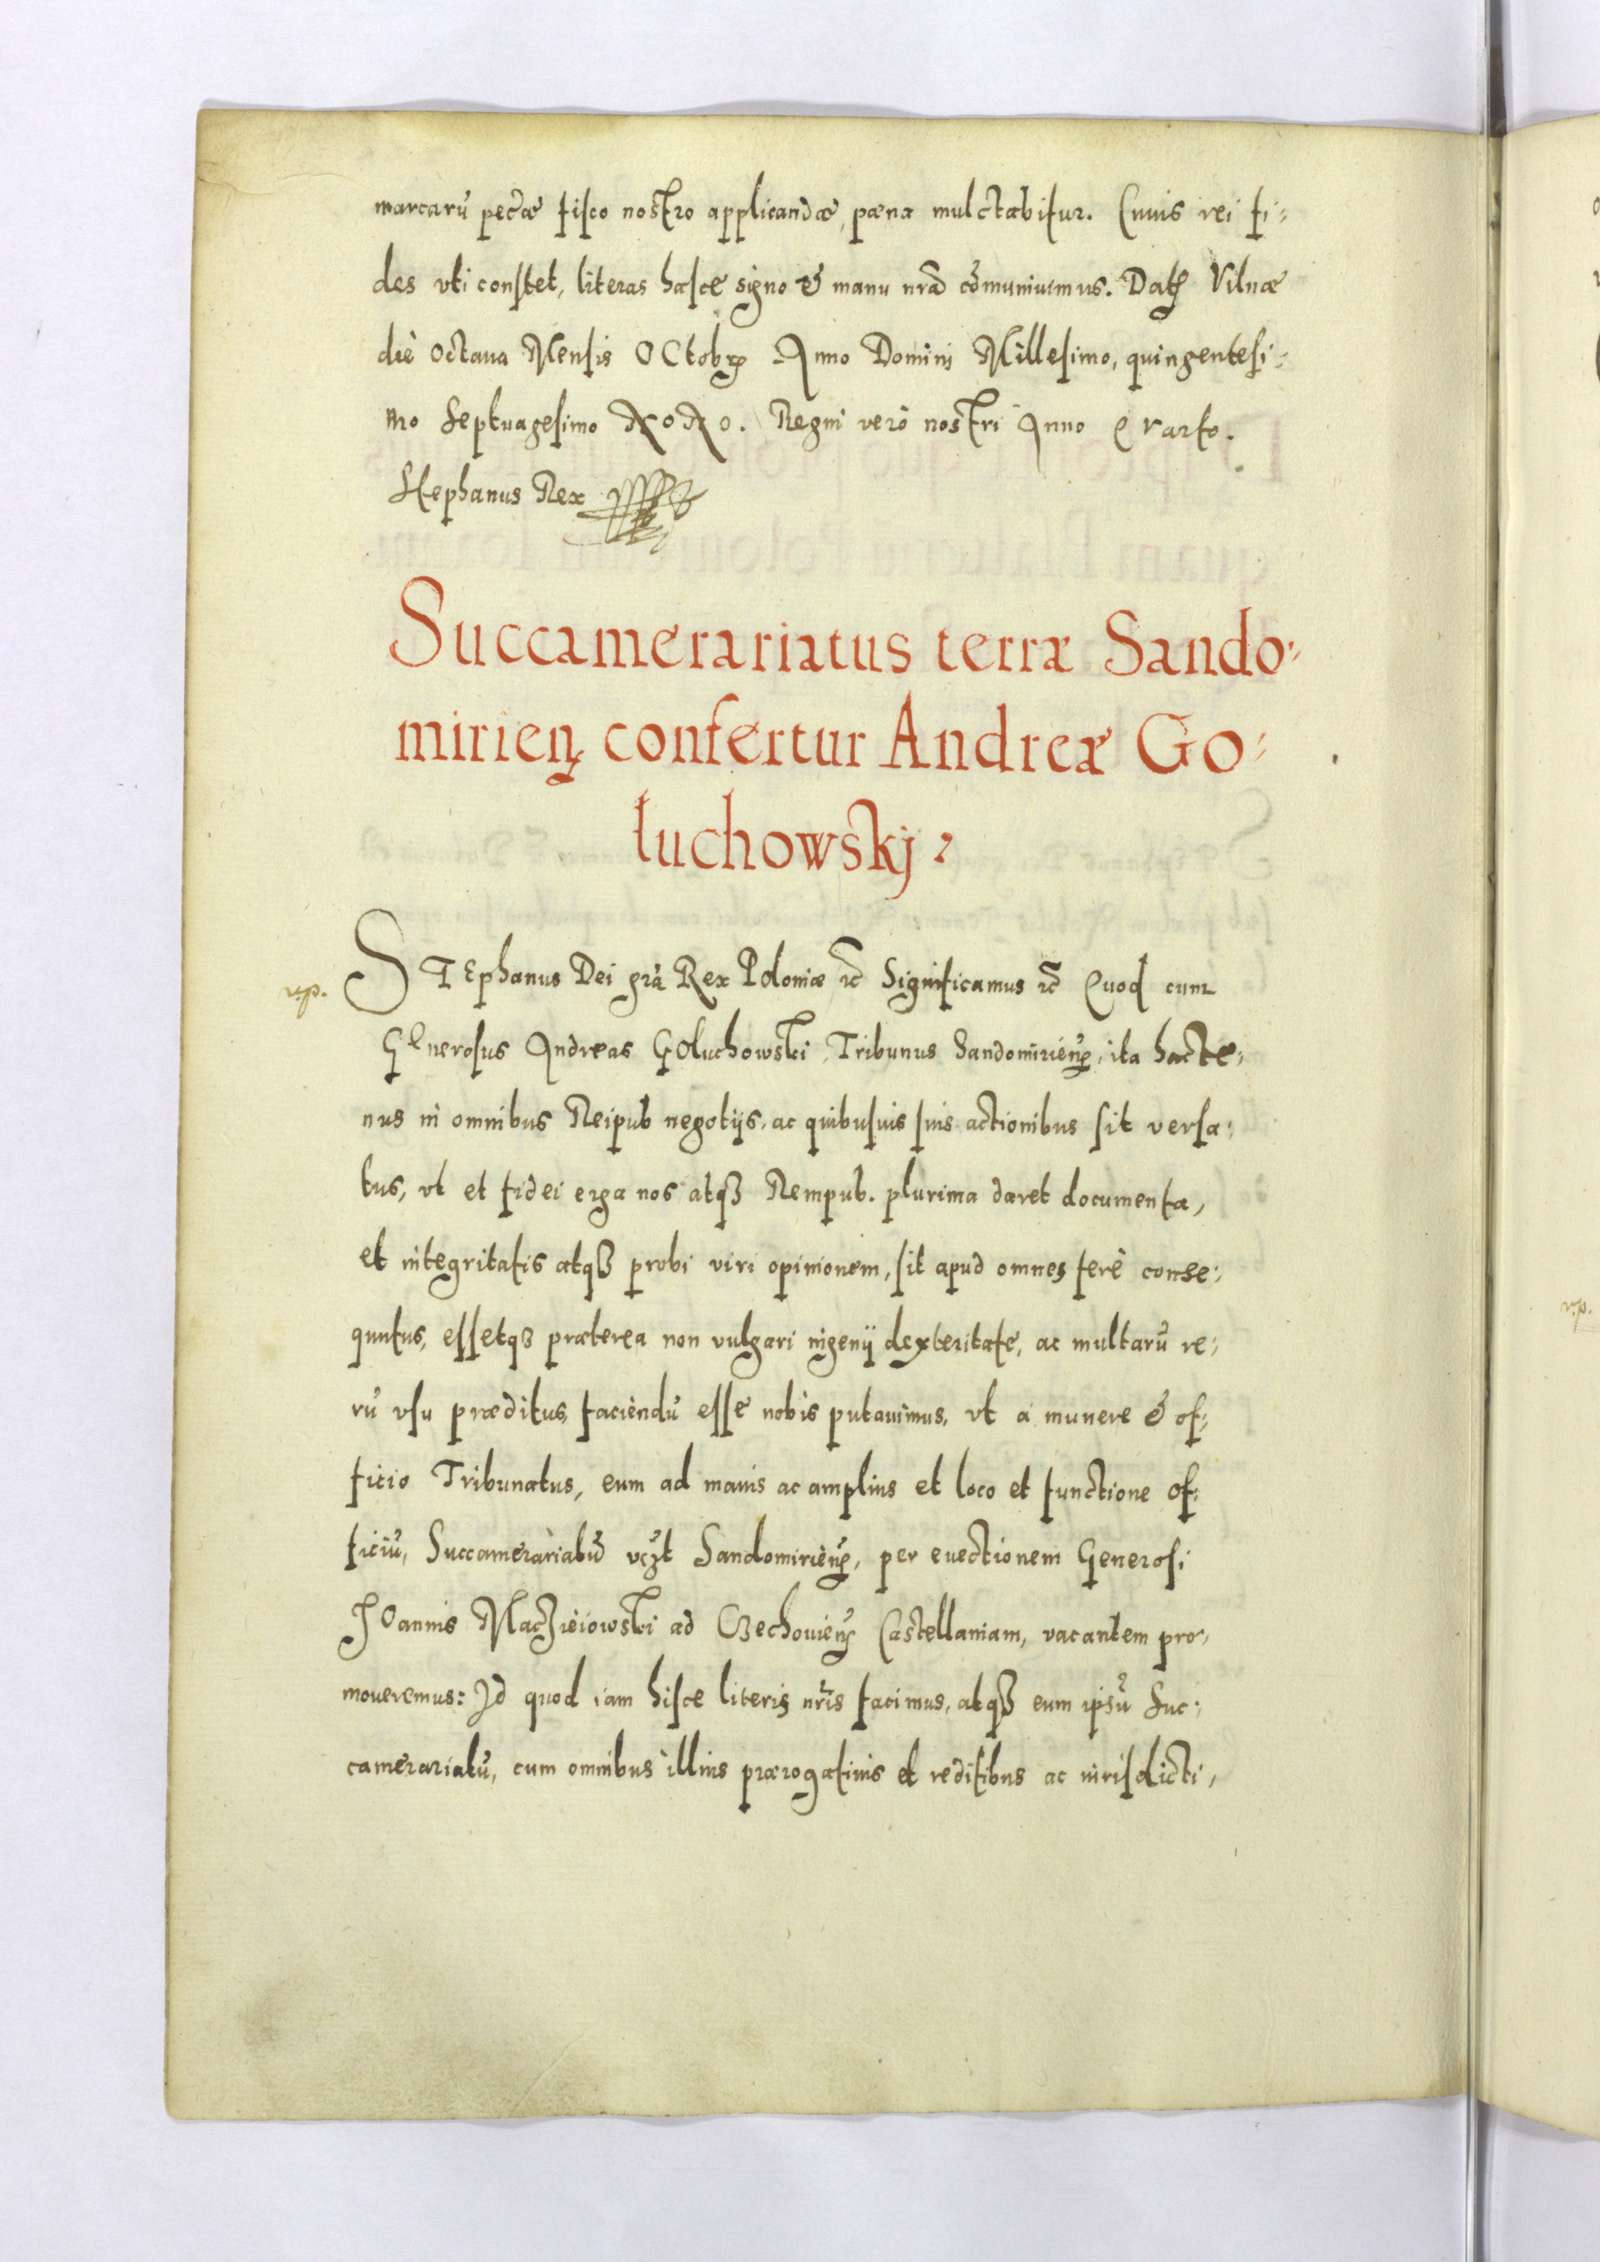 marcarū pec̄æ fisco nostro applicandæ, pæna mulctabitur. Cuius rei fi-
des vti constet, literas hasce signo & manu nr̄a cōmuniuimus. Datȝ Vilnæ
die Octaua Mensis OCtobrꝭ Anno Domini Millesimo, quingentesi-
mo Septuagesimo NoNo. Regni verò nostri Anno Qvarto.
Stephanus Rex
Succamerariatus terræ Sando-
mirienꝭ confertur Andreæ Go-
łuchowskj
v.p.
STEphanus Dei grā Rex Poloniæ ꝛc̄ Significamus ꝛc̄ Quod cum
GEnerosus Andreas GOluchowski Tribunus Sandomirienꝭ, ita hacte-
nus in omnibus Reipub negotijs, ac quibusuis suis actionibus sit versa-
tus, vt et fidei erga nos atqꝫ Rempub. plurima daret documenta,
et integritatis atqꝫ probi viri opinionem, sit apud omnes ferè conse-
quutus, essetqꝫ præterea non vulgari ingenij dexteritate, ac multarū re-
rū vsu præditus, faciendū esse nobis putauimus, vt a munere & of-
ficio Tribunatus, eum ad maius ac amplius et loco et functione of-
ficiū, Succamerariatū vcꝫt Sandomirienꝭ, per euectionem Generosi
IOannis Macżieiowski ad Czechouienꝭ Castellaniam, vacantem pro-
moueremus: Id quod iam hisce literis nr̄is facimus, atqꝫ eum ipsū Suc-
camerariatū, cum omnibus illius prærogatiuis et reditibus ac iurisdicti,
v.p.